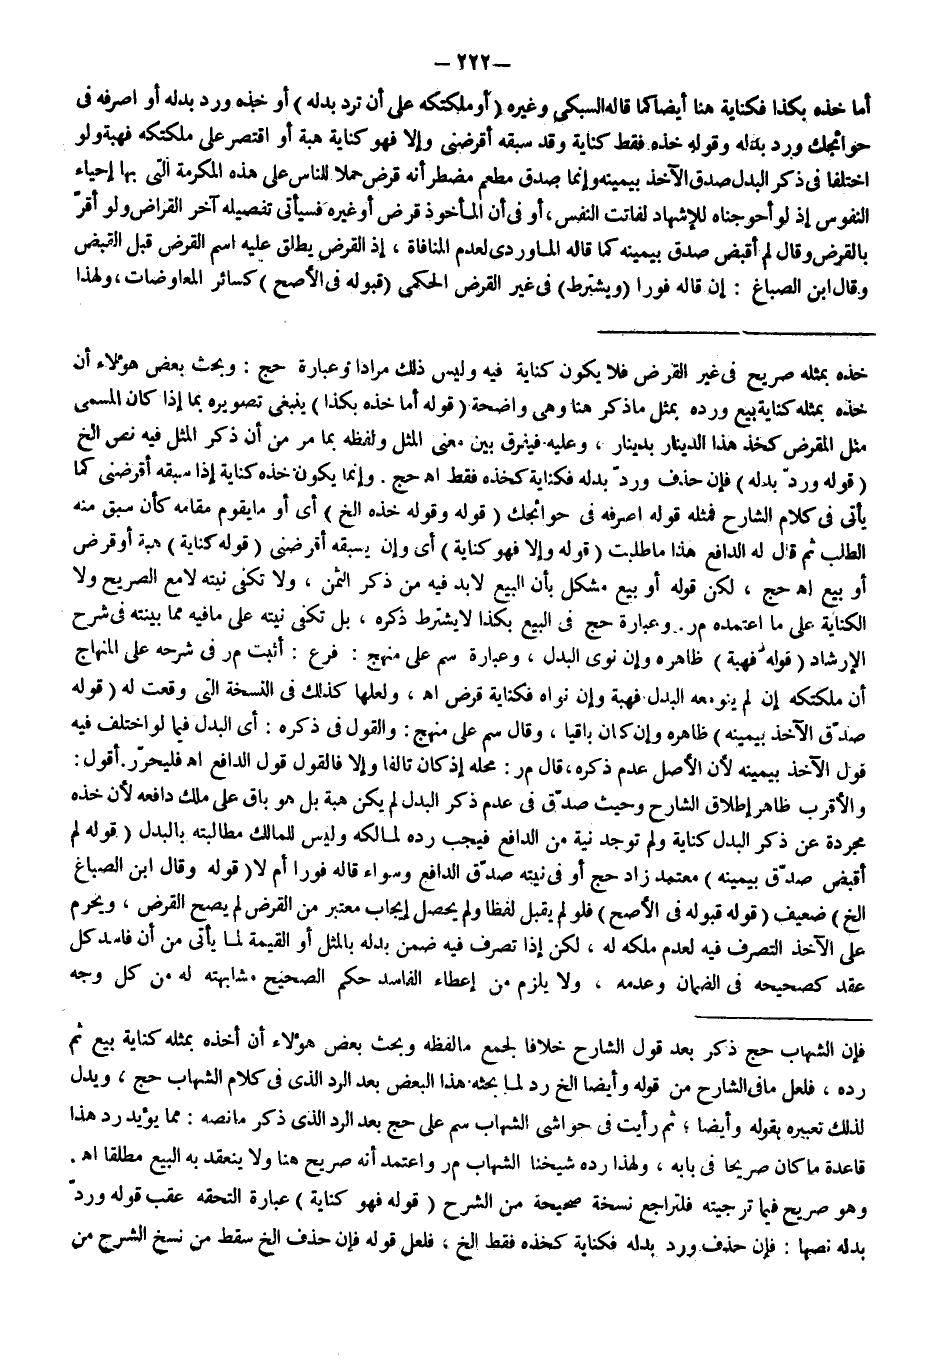 — ٢٢٢ —
أما خذه بكذا فكناية هنا أيضا كما قاله السبكى وغيره (أو ملكتكه على أن ترد بدله) أو خذه ورد بدله أو اصرفه فى
حوائجك ورد بدله وقوله خذه فقط كناية وقد سبقه أقرضنى وإلا فهو كناية هبة أو اقتصر على ملكتكه فهبة ولو
اختلفا فى ذكر البدل صدق الآخذ بيمينه وإنما صدق مطعم مضطر أنه قرض حملا للناس على هذه المكرمة التى بها إحياء
النفوس إذ لو أحوجناه للإشهاد لفاتت النفس، أو فى أن المأخوذ قرض أو غيره فسيأتى تفصيله آخر القراض ولو أقرّ
بالقرض وقال لم أقبض صدق بيمينه كما قاله الماوردى لعدم المنافاة ، إذ القرض يطلق عليه اسم القرض قبل القبض
وقال ابن الصباغ : إن قاله فورا (ويشترط) فى غير القرض الحكمى (قبوله فى الأصح) كسائر المعاوضات، ولهذا
خذه بمثله صريح فى غير القرض فلا يكون كناية فيه وليس ذلك مرادا وعبارة حج : وبحث بعض هؤلاء أن
خذه بمثله كناية بيع ورده بمثل ماذكر هنا وهى واضحة (قوله أما خذه بكذا) ينبغى تصويره بما إذا كان المسمى
مثل المقرض كخذ هذا الدينار بدينار ، وعليه فيفرق بين معنى المثل ولفظه بما مر من أن ذكر المثل فيه نص الخ
(قوله وردّ بدله) فإن حذف وردّ بدله فكناية كخذه فقط اه حج . وإنما يكون خذه كناية إذا سبقه أقرضنى كما
يأتى فى كلام الشارح فمثله قوله اصرفه فى حوائجك (قوله وقوله خذه الخ) أى أو مايقوم مقامه كأن سبق منه
الطلب ثم قال له الدافع هذا ماطلبت (قوله وإلا فهو كناية) أى وإن يسبقه أقرضنى (قوله كناية) هبة أو قرض
أو بيع اه حج ، لكن قوله أو بيع مشكل بأن البيع لابد فيه من ذكر الثمن ، ولا تكفى نيته لامع الصريح ولا
الكناية على ما اعتمده مر . وعبارة حج فى البيع بكذا لايشترط ذكره ، بل تكفى نيته على مافيه مما بينته فى شرح
الإرشاد (قوله فهبة) ظاهره وإن نوى البدل ، وعبارة سم على منهج : فرع : أثبت مر فى شرحه على المنهاج
أن ملكتكه إن لم ينو معه البدل فهبة وإن نواه فكناية قرض اه ، ولعلها كذلك فى النسخة التى وقعت له (قوله
صدّق الآخذ بيمينه) ظاهره وإن كان باقيا ، وقال سم على منهج : والقول فى ذكره : أى البدل فيما لو اختلف فيه
قول الآخذ بيمينه لأن الأصل عدم ذكره، قال مر : محله إذ كان تالفا وإلا فالقول قول الدافع اه فليحرّر . أقول :
والأقرب ظاهر إطلاق الشارح وحيث صدّق فى عدم ذكر البدل لم يكن هبة بل هو باق على ملك دافعه لأن خذه
مجردة عن ذكر البدل كناية ولم توجد نية من الدافع فيجب رده لمالكه وليس للمالك مطالبته بالبدل (قوله لم
أقبض صدّق بيمينه) معتمد زاد حج أو فى نيته صدّق الدافع وسواء قاله فورا أم لا (قوله وقال ابن الصباغ
الخ) ضعيف (قوله قبوله فى الأصح) فلو لم يقبل لفظا ولم يحصل إيجاب معتبر من القرض لم يصح القرض ، ويحرم
على الآخذ التصرف فيه لعدم ملكه له ، لكن إذا تصرف فيه ضمن بدله بالمثل أو القيمة لما يأتى من أن فاسد كل
عقد كصحيحه فى الضمان وعدمه ، ولا يلزم من إعطاء الفاسد حكم الصحيح مشابهته له من كل وجه
فإن الشهاب حج ذكر بعد قول الشارح خلافا لجمع مالفظه وبحث بعض هؤلاء أن أخذه بمثله كناية بيع ثم
رده ، فلعل مافى الشارح من قوله وأيضا الخ رد لما بحثه هذا البعض بعد الرد الذى فى كلام الشهاب حج ، ويدل
لذلك تعبيره بقوله وأيضا ؛ ثم رأيت فى حواشى الشهاب سم على حج بعد الرد الذى ذكر مانصه : مما يؤيد رد هذا
قاعدة ماكان صريحا فى بابه ، ولهذا رده شيخنا الشهاب مر واعتمد أنه صريح هنا ولا ينعقد به البيع مطلقا اه .
وهو صريح فيما ترجيته فلتراجع نسخة صحيحة من الشرح (قوله فهو كناية) عبارة التحفه عقب قوله وردّ
بدله نصها : فإن حذف ورد بدله فكناية كخذه فقط الخ ، فلعل قوله فإن حذف الخ سقط من نسخ الشرح من